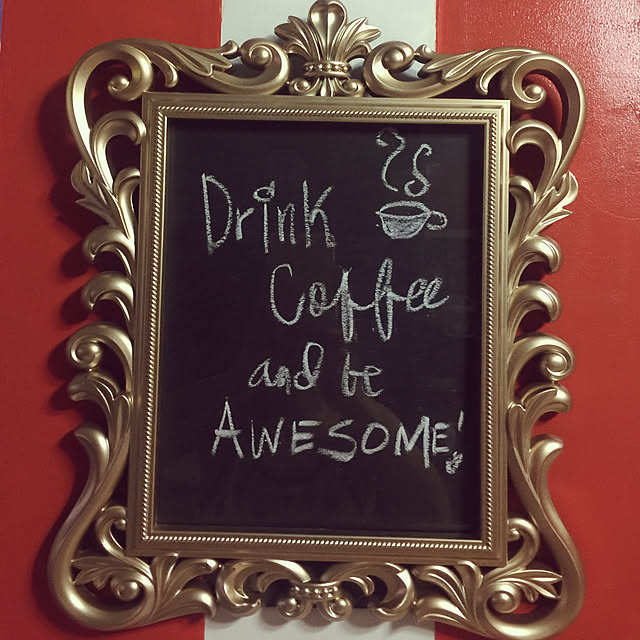 Drink
Coffee
and be
AWESOME!